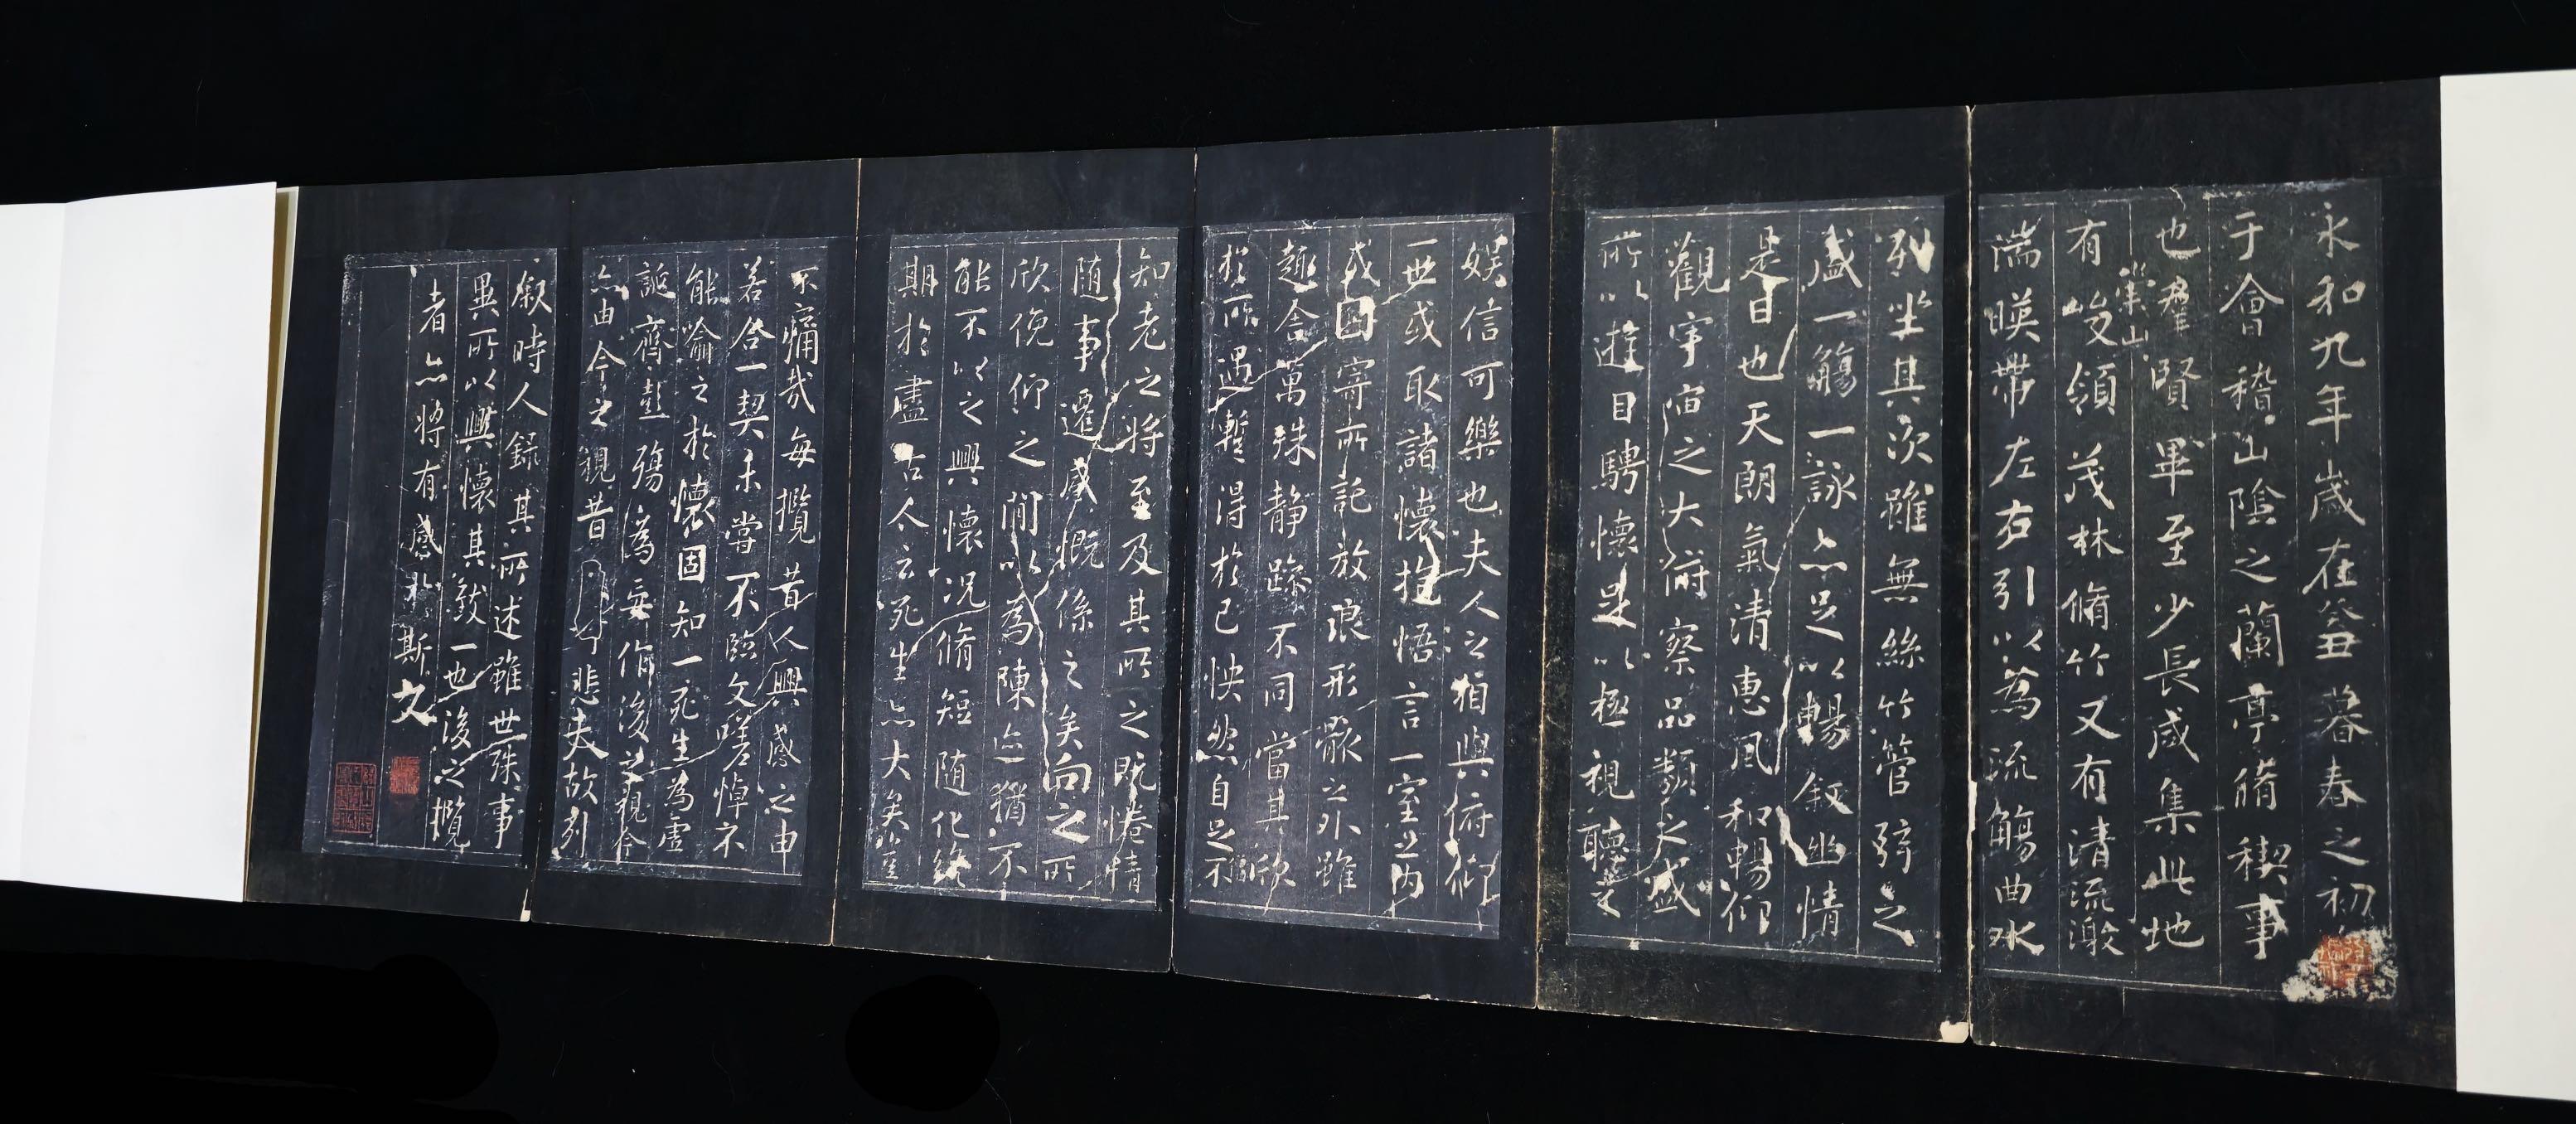 永和九年歲在癸丑暮春之初
于會稽山陰之蘭亭脩稧事
也羣賢畢至少長咸集此地
崇山
有峻領茂林脩竹又有清流激
湍暎帶左右引以為流觴曲水
列坐其次雖無絲竹管弦之
盛一觴一詠亦足以暢敘幽情
是日也天朗氣清惠風和暢仰
觀宇宙之大俯察品類之盛
所以遊目騁懷足以極視聽之
娛信可樂也夫人之相與俯仰
一世或取諸懷抱悟言一室之內
或因寄所託放浪形骸之外雖
趣舍萬殊靜躁不同當其欣
於所遇暫得於己怏然自足不
知老之將至及其所之既惓情
隨事遷感慨係之矣向之所
欣俛仰之間以為陳迹猶不
能不以之興懷況脩短隨化終
期於盡古人云死生亦大矣豈
不痛哉每攬昔人興感之由
若合一契未嘗不臨文嗟悼不
能喻之於懷固知一死生為虛
誕齊彭殤為妄作後之視今
亦由今之視昔悲夫故列
敘時人錄其所述雖世殊事
異所以興懷其致一也後之攬
者亦將有感於斯文